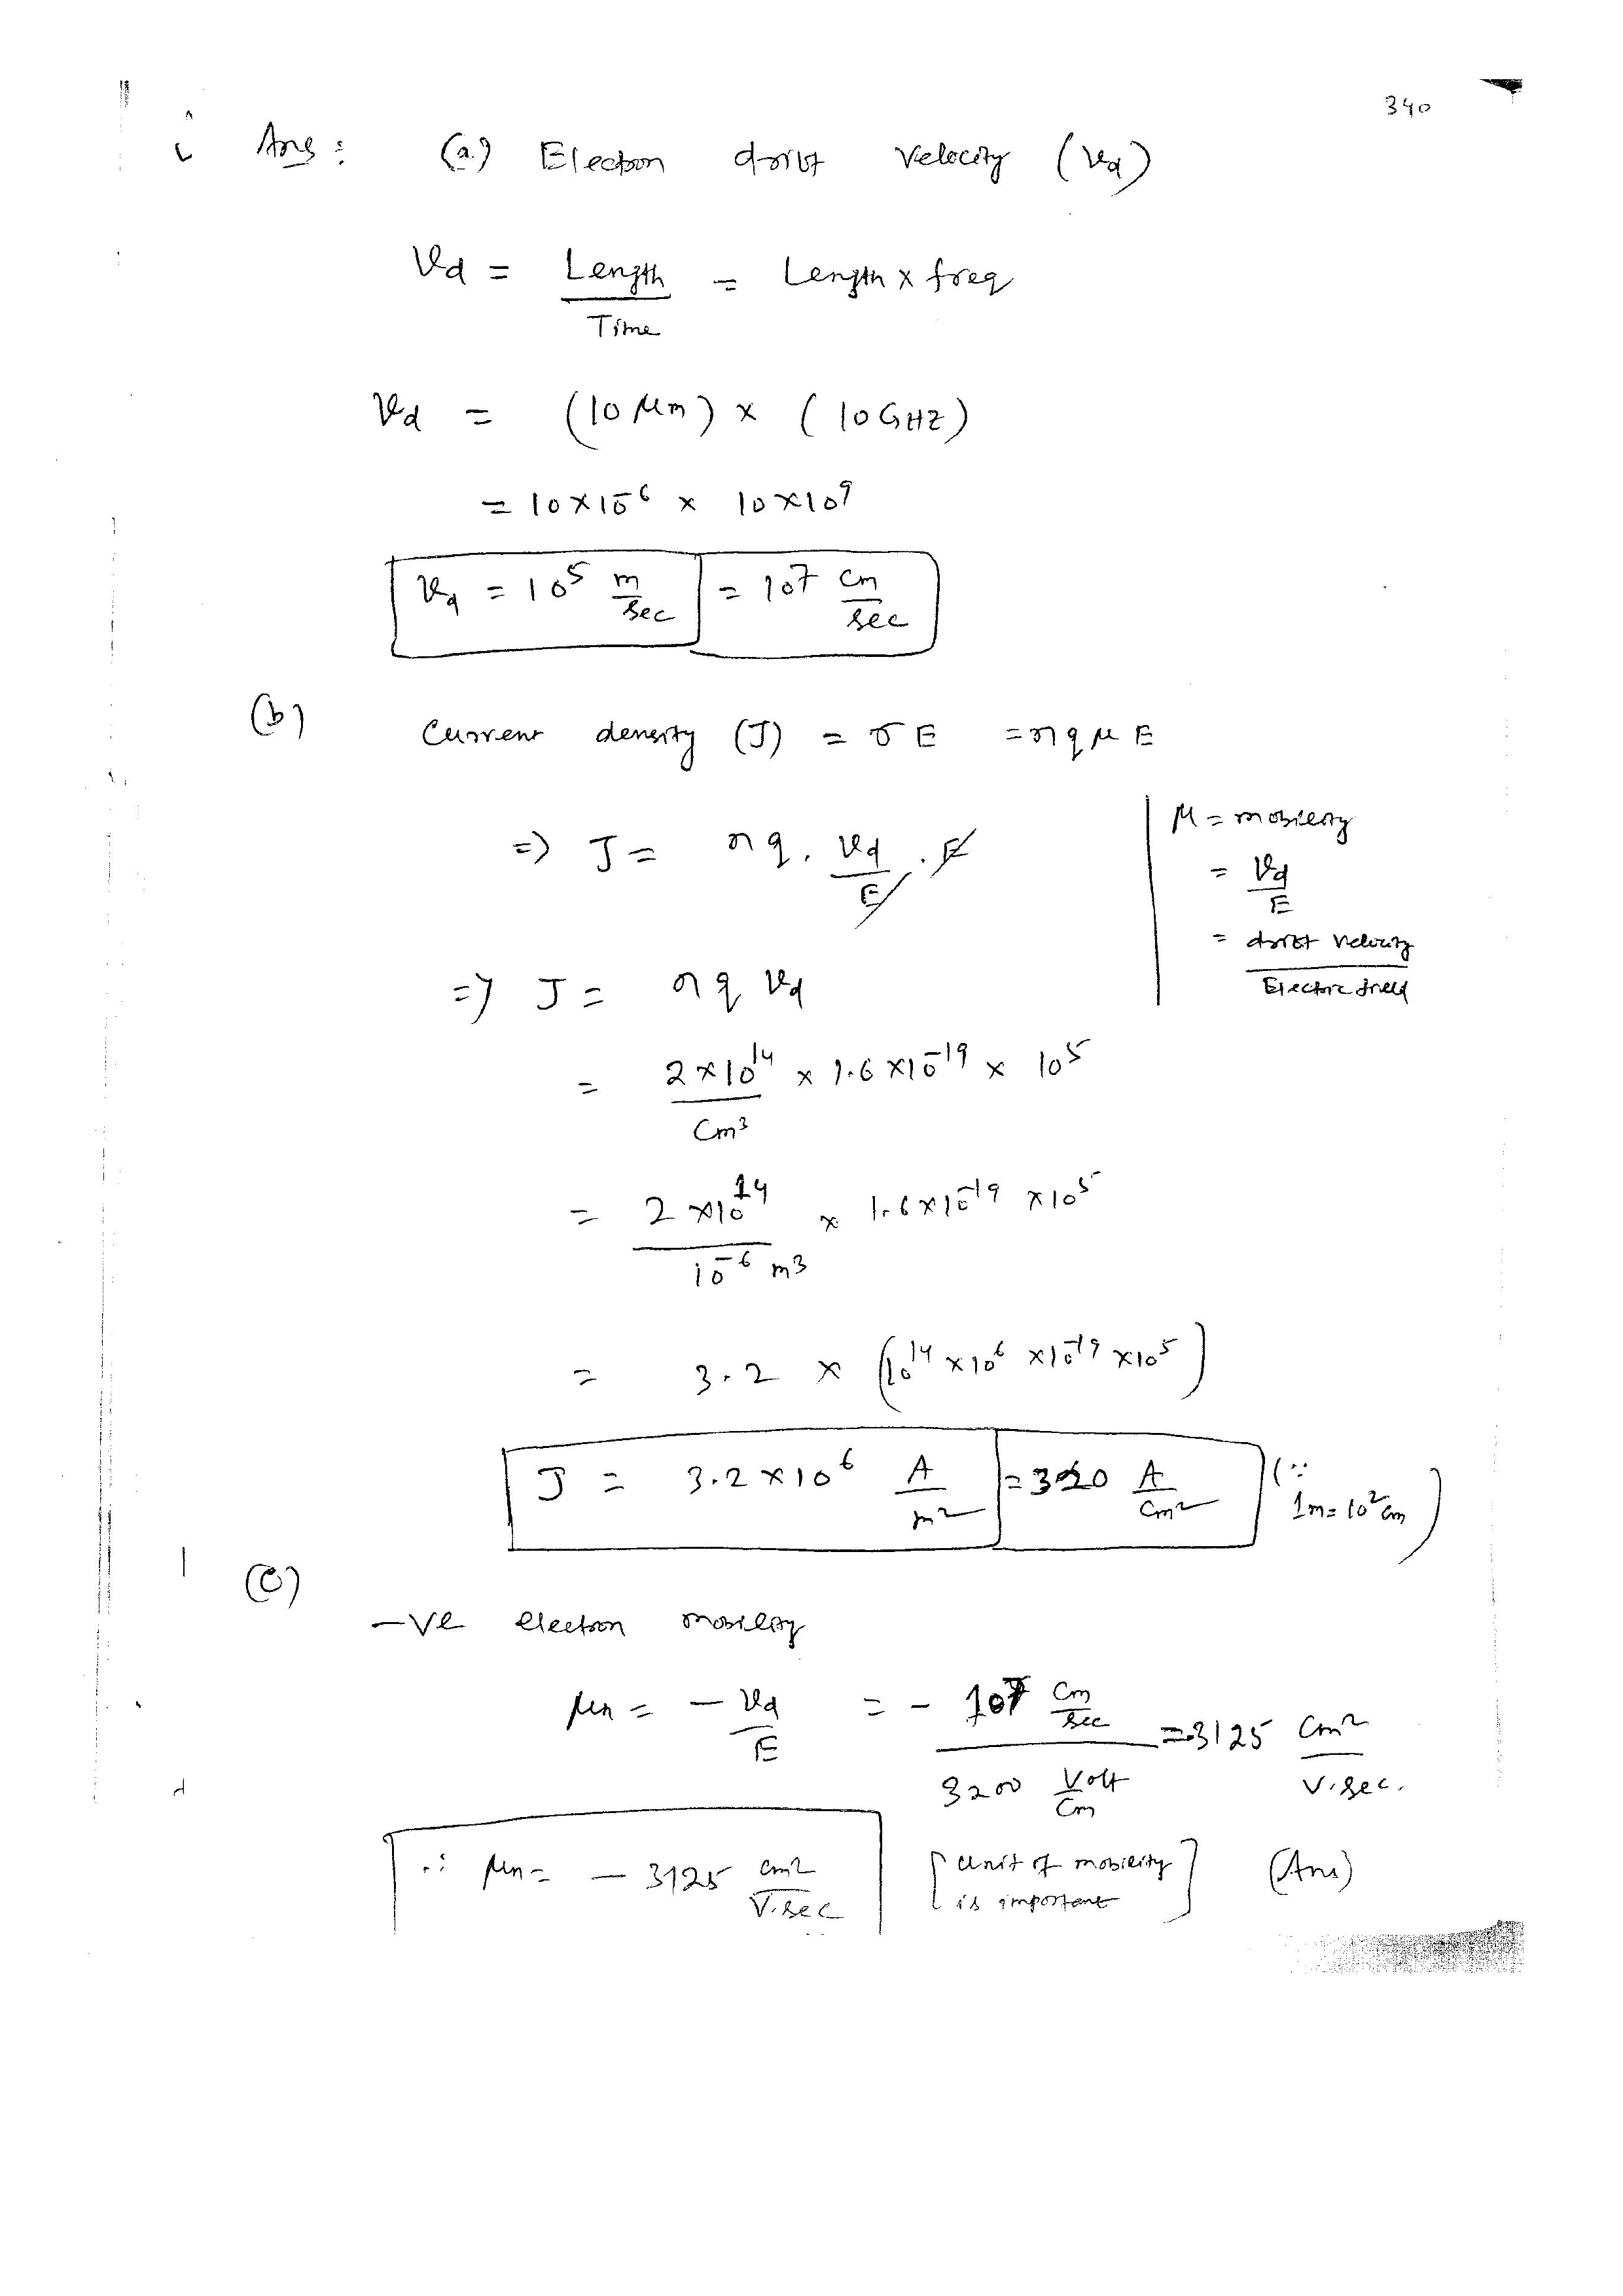 340
Ans : (a) Electron drift velocity (Vd)
Vd = Length / Time = Length x freq
Vd = (10 μm) x (10 GHZ)
= 10 x 10^-6 x 10 x 10^9
Vd = 10^5 m/sec = 10^7 cm/sec
(b) Current density (J) = σ E = n q μ E
=> J = n q . Vd/E . E
μ = mobility
= Vd/E
= drift velocity / Electric field
=> J = n q Vd
= 2 x 10^14 / cm^3 x 1.6 x 10^-19 x 10^5
= 2 x 10^14 / 10^-6 m^3 x 1.6 x 10^-19 x 10^5
= 3.2 x (10^14 x 10^6 x 10^-19 x 10^5)
J = 3.2 x 10^6 A/m^2 = 320 A/cm^2 (∵ 1m = 10^2 cm)
(c)
-ve electron mobility
μn = - Vd/E = - 10^7 cm/sec / 3200 Volt/cm = -3125 cm^2/V.sec.
∴ μn = - 3125 cm^2/V.sec [unit of mobility is important] (Ans)